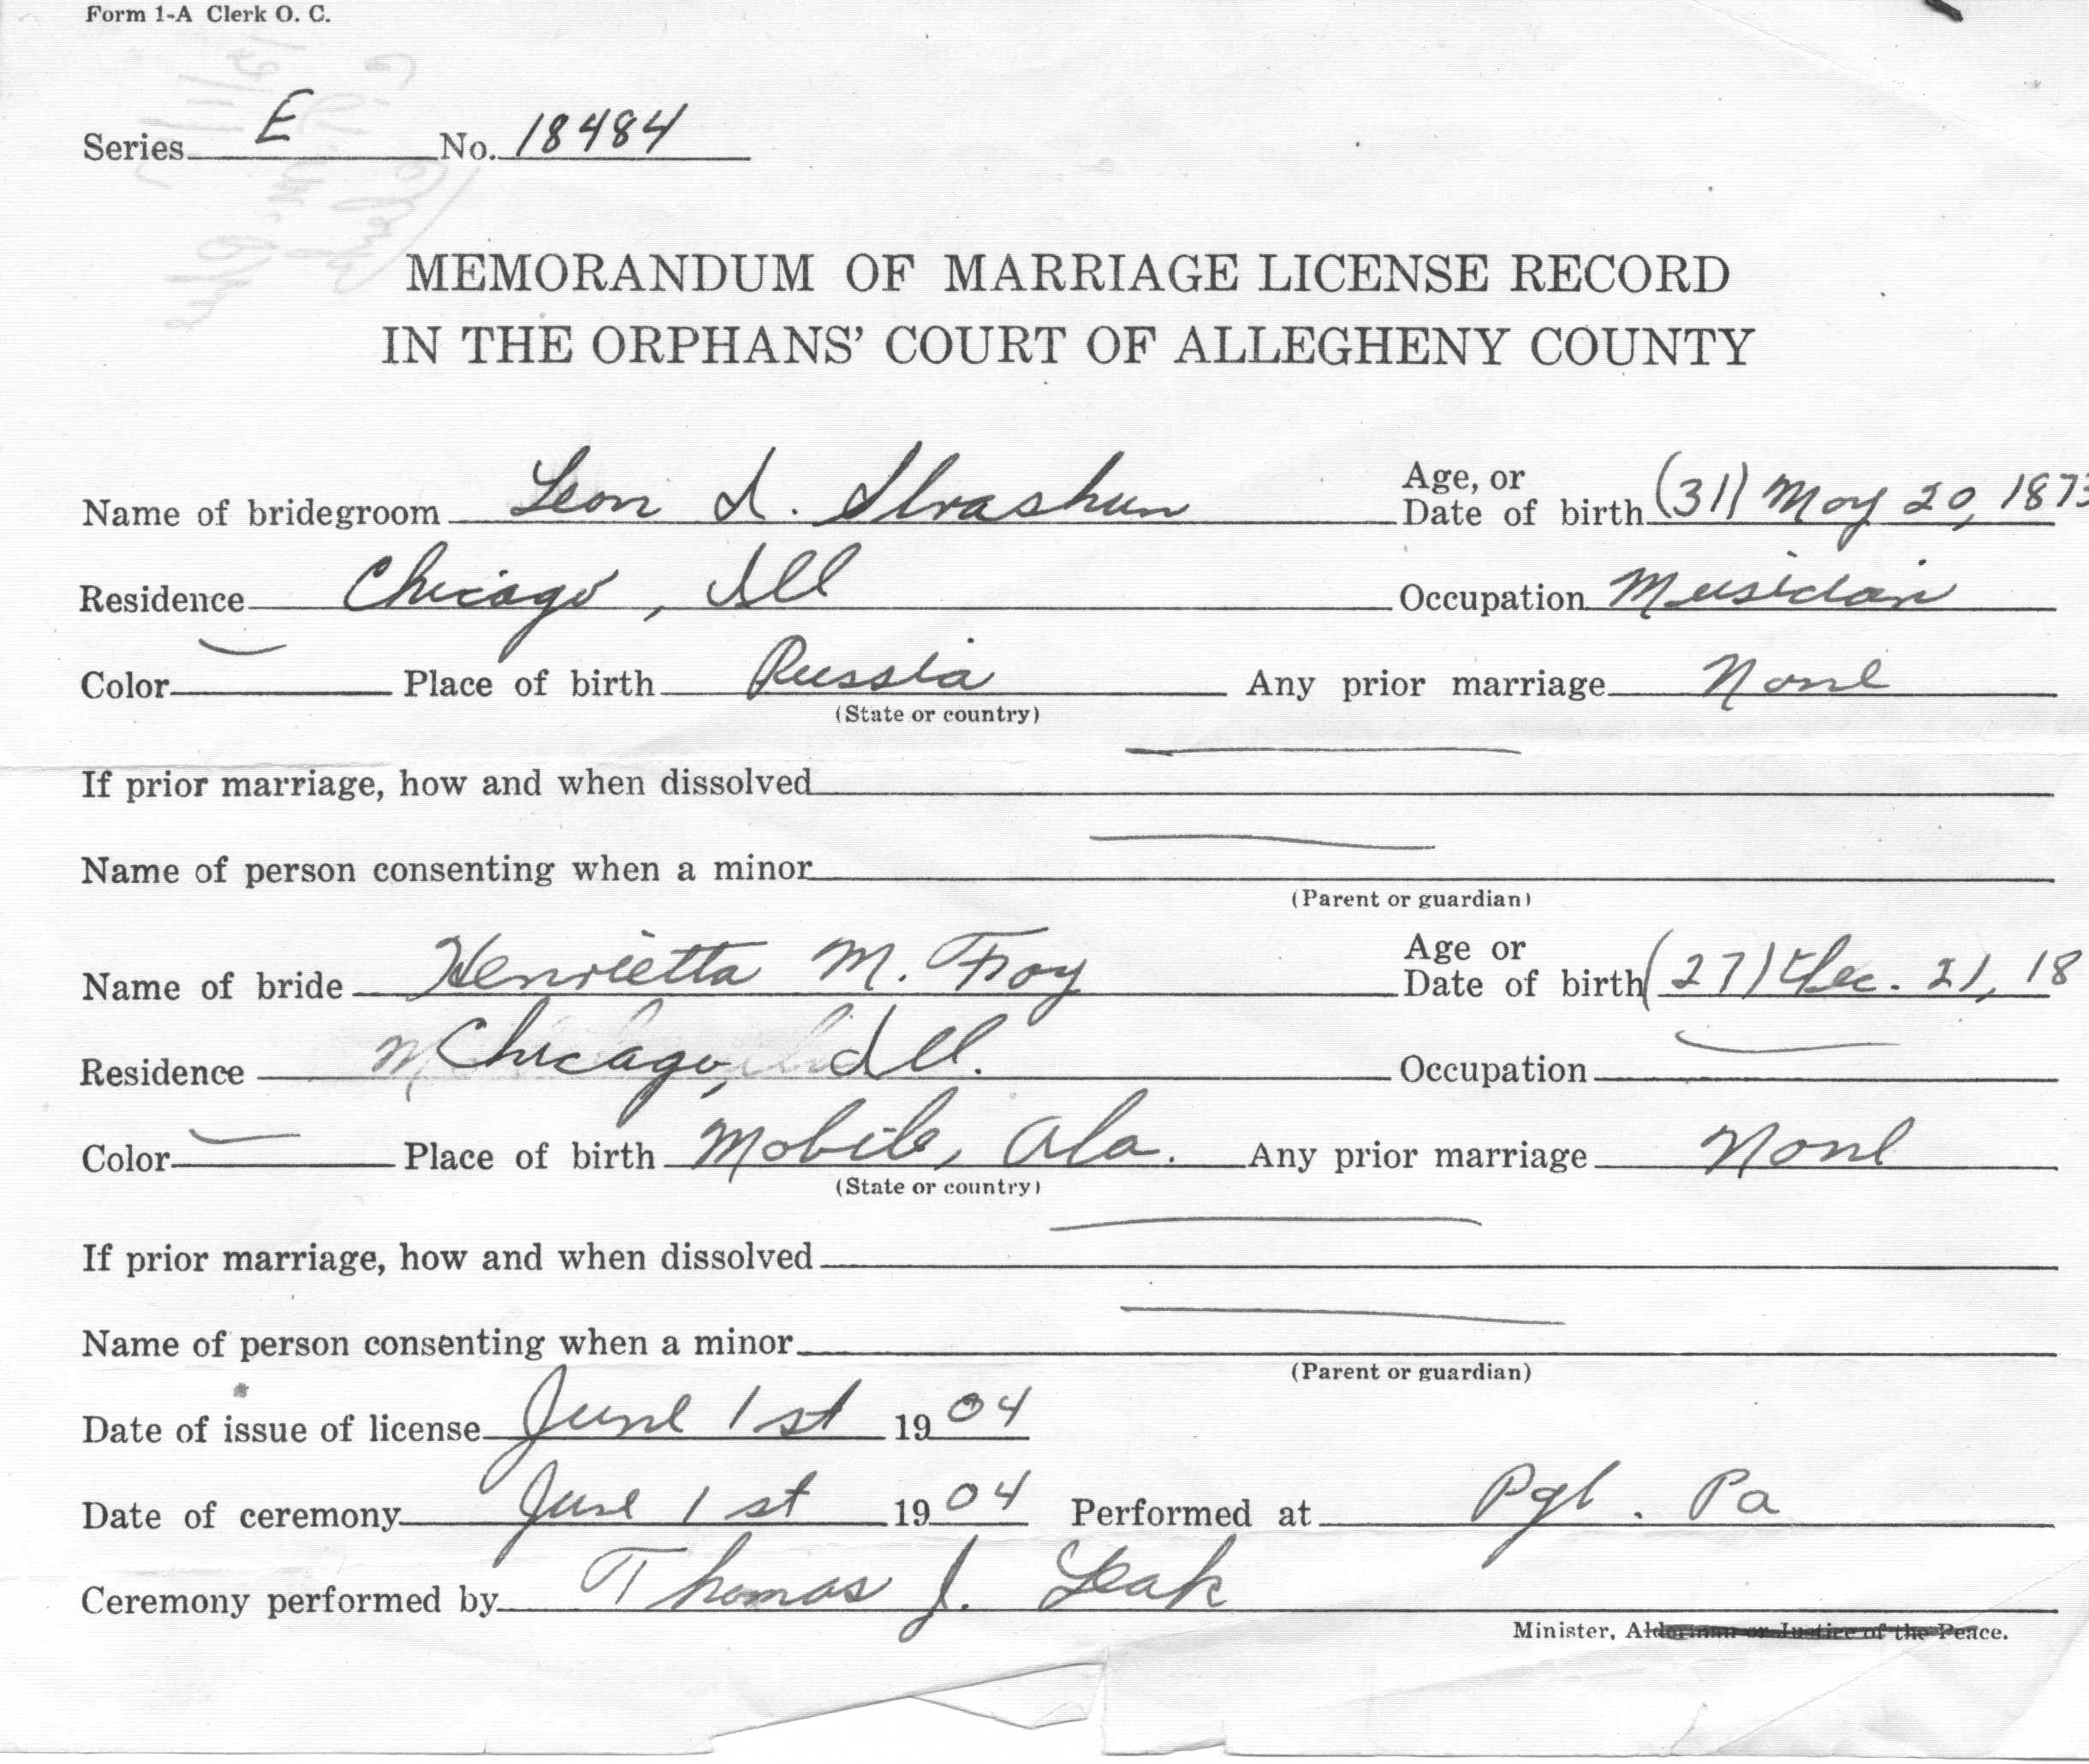 Form 1-A Clerk O. C.
Series E No. 18484
MEMORANDUM OF MARRIAGE LICENSE RECORD
IN THE ORPHANS' COURT OF ALLEGHENY COUNTY
Name of bridegroom Leon I. Strashun Age, or Date of birth (31) May 20, 1873
Residence Chicago, Ill Occupation Musician
Color Place of birth Russia Any prior marriage None
(State or country)
If prior marriage, how and when dissolved
Name of person consenting when a minor
(Parent or guardian)
Name of bride Henrietta M. Froy Age or Date of birth (27) Dec. 21, 18
Residence Chicago, Ill. Occupation
Color Place of birth Mobile, Ala. Any prior marriage None
(State or country)
If prior marriage, how and when dissolved
Name of person consenting when a minor
(Parent or guardian)
Date of issue of license June 1st 1904
Date of ceremony June 1st 1904 Performed at Pgh. Pa
Ceremony performed by Thomas J. Leak
Minister, Alderman or Justice of the Peace.